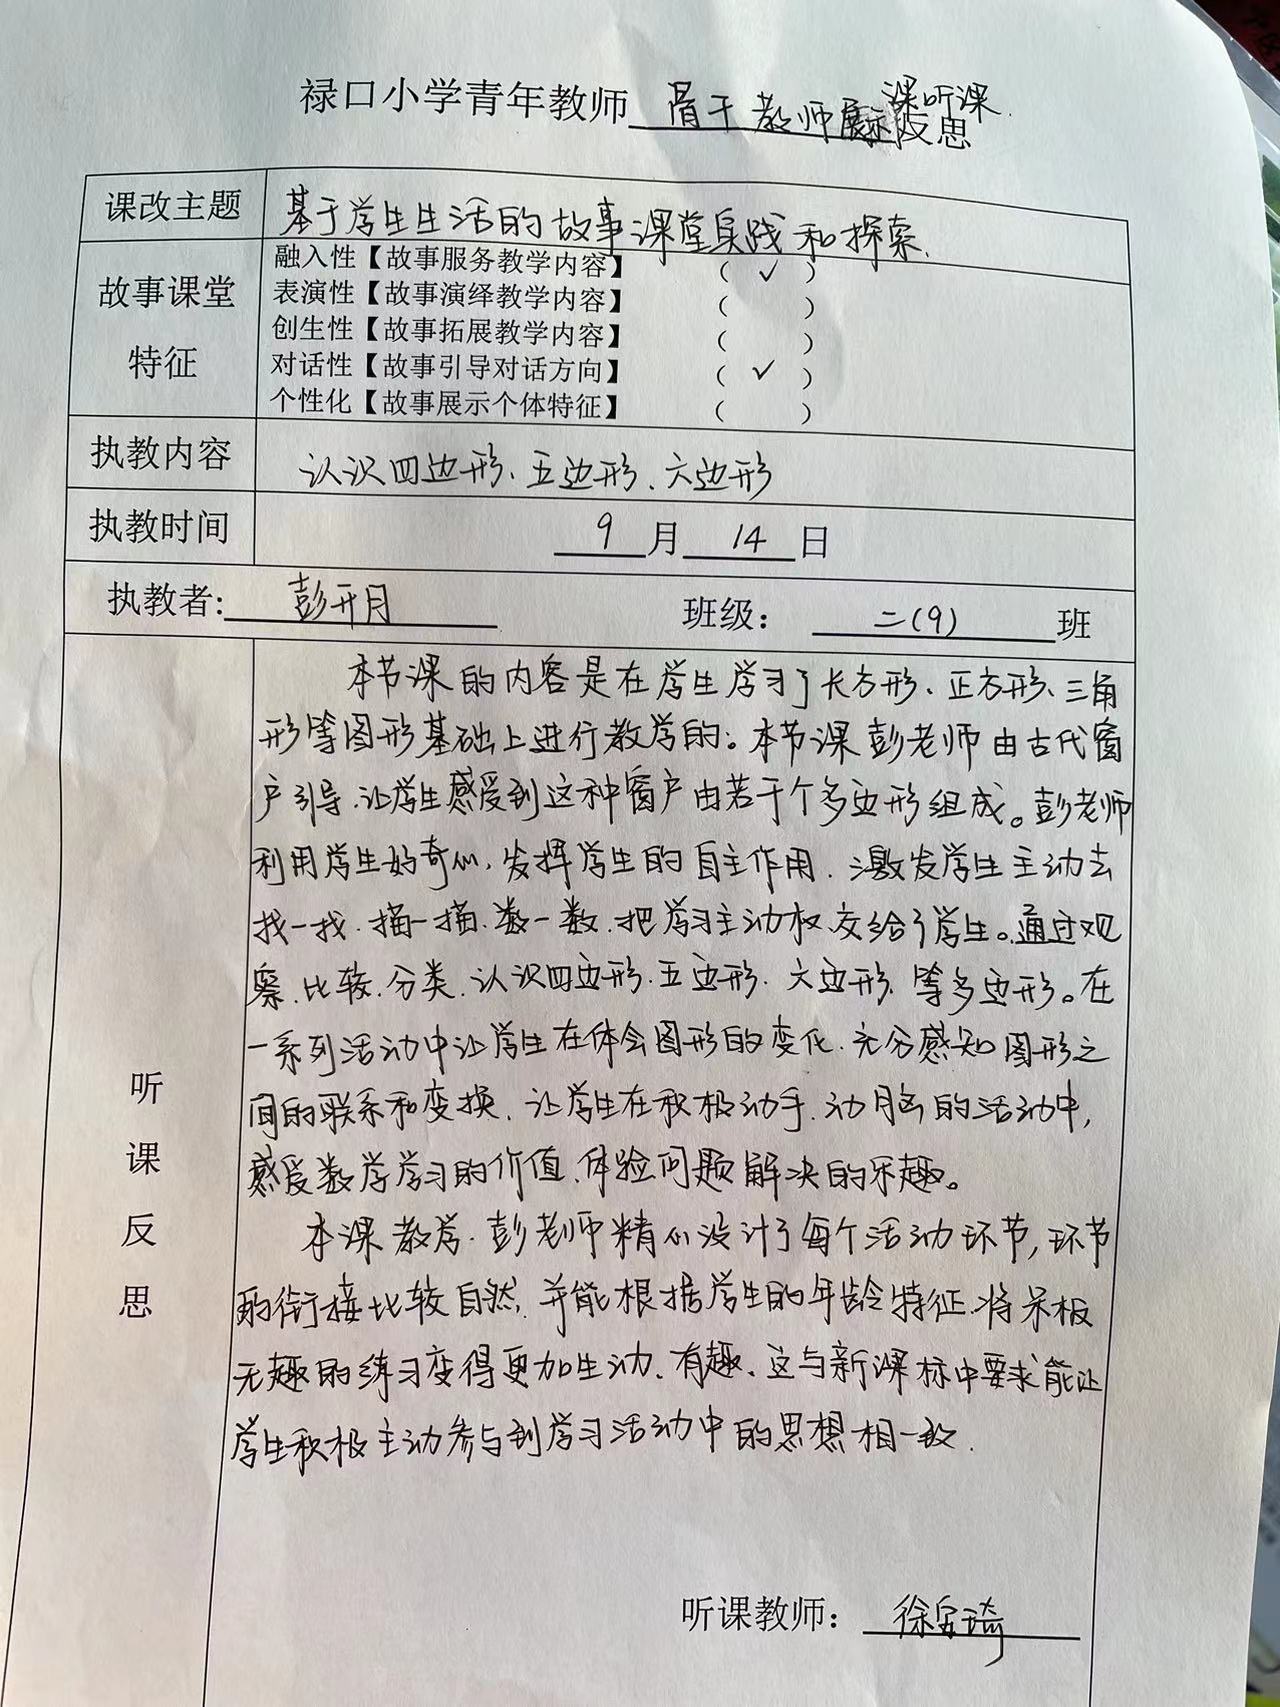 禄口小学青年教师 骨干教师展示课听课反思
课改主题 基于学生生活的故事课堂实践和探索.
故事课堂特征
融入性【故事服务教学内容】 ( ✓ )
表演性【故事演绎教学内容】 ( )
创生性【故事拓展教学内容】 ( )
对话性【故事引导对话方向】 ( ✓ )
个性化【故事展示个体特征】 ( )
执教内容 认识四边形、五边形、六边形
执教时间 9 月 14 日
执教者: 彭开月 班级: 二(9) 班
听课反思
本节课的内容是在学生学习了长方形、正方形、三角
形等图形基础上进行教学的。本节课彭老师由古代窗
户引导,让学生感受到这种窗户由若干个多边形组成。彭老师
利用学生好奇心,发挥学生的自主作用.激发学生主动去
找一找.描一描.数一数.把学习主动权交给了学生。通过观
察.比较.分类.认识四边形.五边形.六边形.等多边形。在
一系列活动中让学生在体会图形的变化.充分感知图形之
间的联系和变换.让学生在积极动手.动脑的活动中,
感受数学学习的价值.体验问题解决的乐趣。
本课教学.彭老师精心设计了每个活动环节,环节
的衔接比较自然,并能根据学生的年龄特征.将呆板
无趣的练习变得更加生动、有趣、这与新课标中要求能让
学生积极主动参与到学习活动中的思想相一致.
听课教师: 徐宝琦